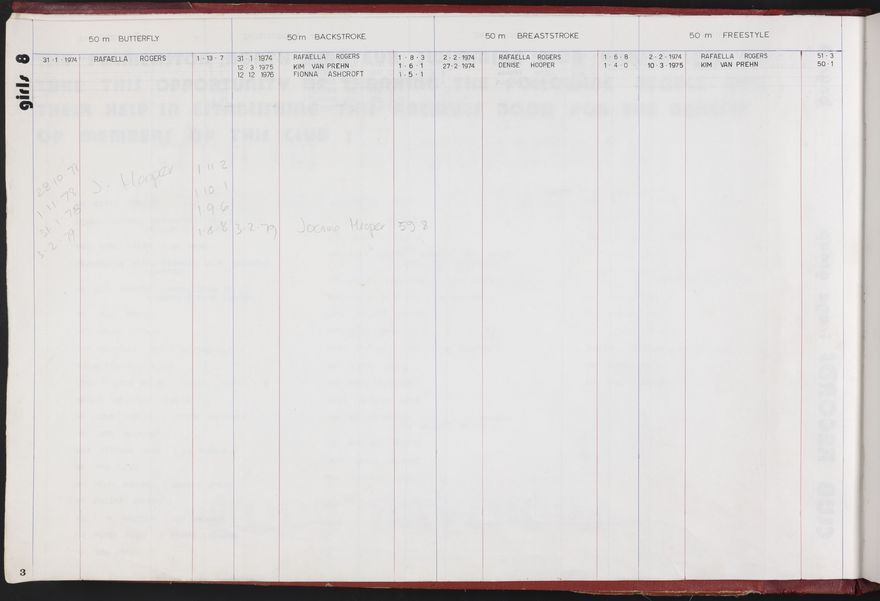 girls 8
50 m BUTTERFLY
31 · 1 · 1974 RAFAELLA ROGERS 1 · 13 · 7
28 · 10 · 78 J. Hooper 1 11 2
1 · 11 · 78 1 10 · 1
31 · 1 · 79 1 · 9 · 6
3 · 2 · 79 1 · 8 · 8
50 m BACKSTROKE
31 · 1 · 1974 RAFAELLA ROGERS 1 · 8 · 3
12 · 3 · 1975 KIM VAN PREHN 1 · 6 · 1
12 · 12 · 1976 FIONNA ASHCROFT 1 · 5 · 1
3 · 2 · 79 Joanne Hooper 59 · 8
50 m BREASTSTROKE
2 · 2 · 1974 RAFAELLA ROGERS 1 · 6 · 8
27 · 2 · 1974 DENISE HOOPER 1 · 4 · 0
50 m FREESTYLE
2 · 2 · 1974 RAFAELLA ROGERS 51 · 3
10 · 3 · 1975 KIM VAN PREHN 50 · 1
3